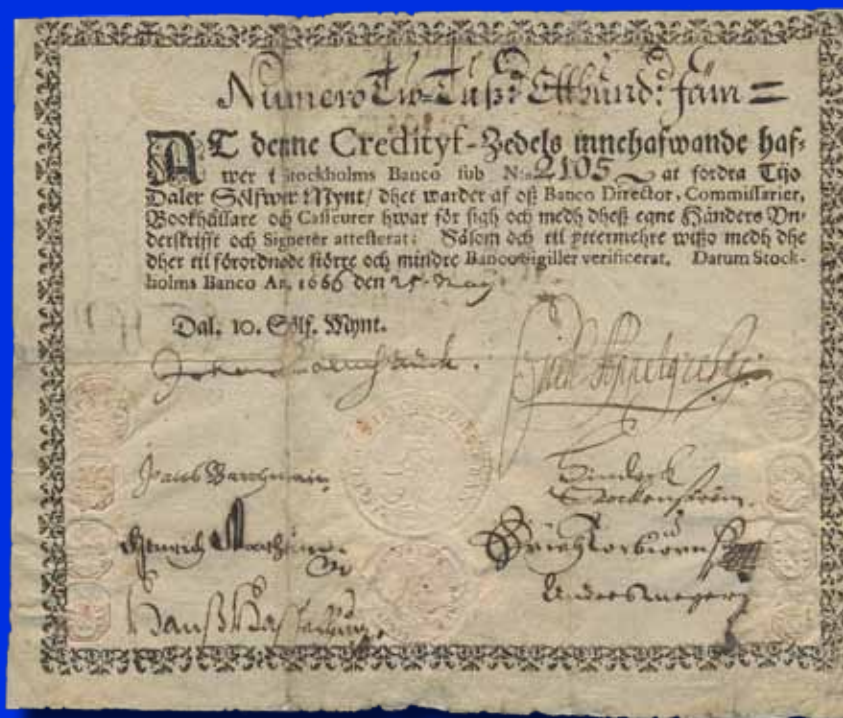 Numero Tw-Tuß: Etthund: fäm =
AT denne Credityf-Zedels innehafwande haf-
wer i Stockholms Banco sub N:o 2105 at fordra Tijo
Daler Sölfwer Mynt/ dhet warder af oß Banco Director, Commissarier,
Bookhållare och Casseurer hwar för sigh och medh dheß egne Händers Vn-
derskrifft och Signeter attesterat: Såsom och til yttermehre wißo medh dhe
dher til förordnade större och mindre Banco-Sigiller verificerat. Datum Stock-
holms Banco An. 1666 den 25. May
Dal. 10. Sölf. Mynt.
Johan Palmstruck.
Jacob
Hinrich
Stockenström.
Hanß
Anders